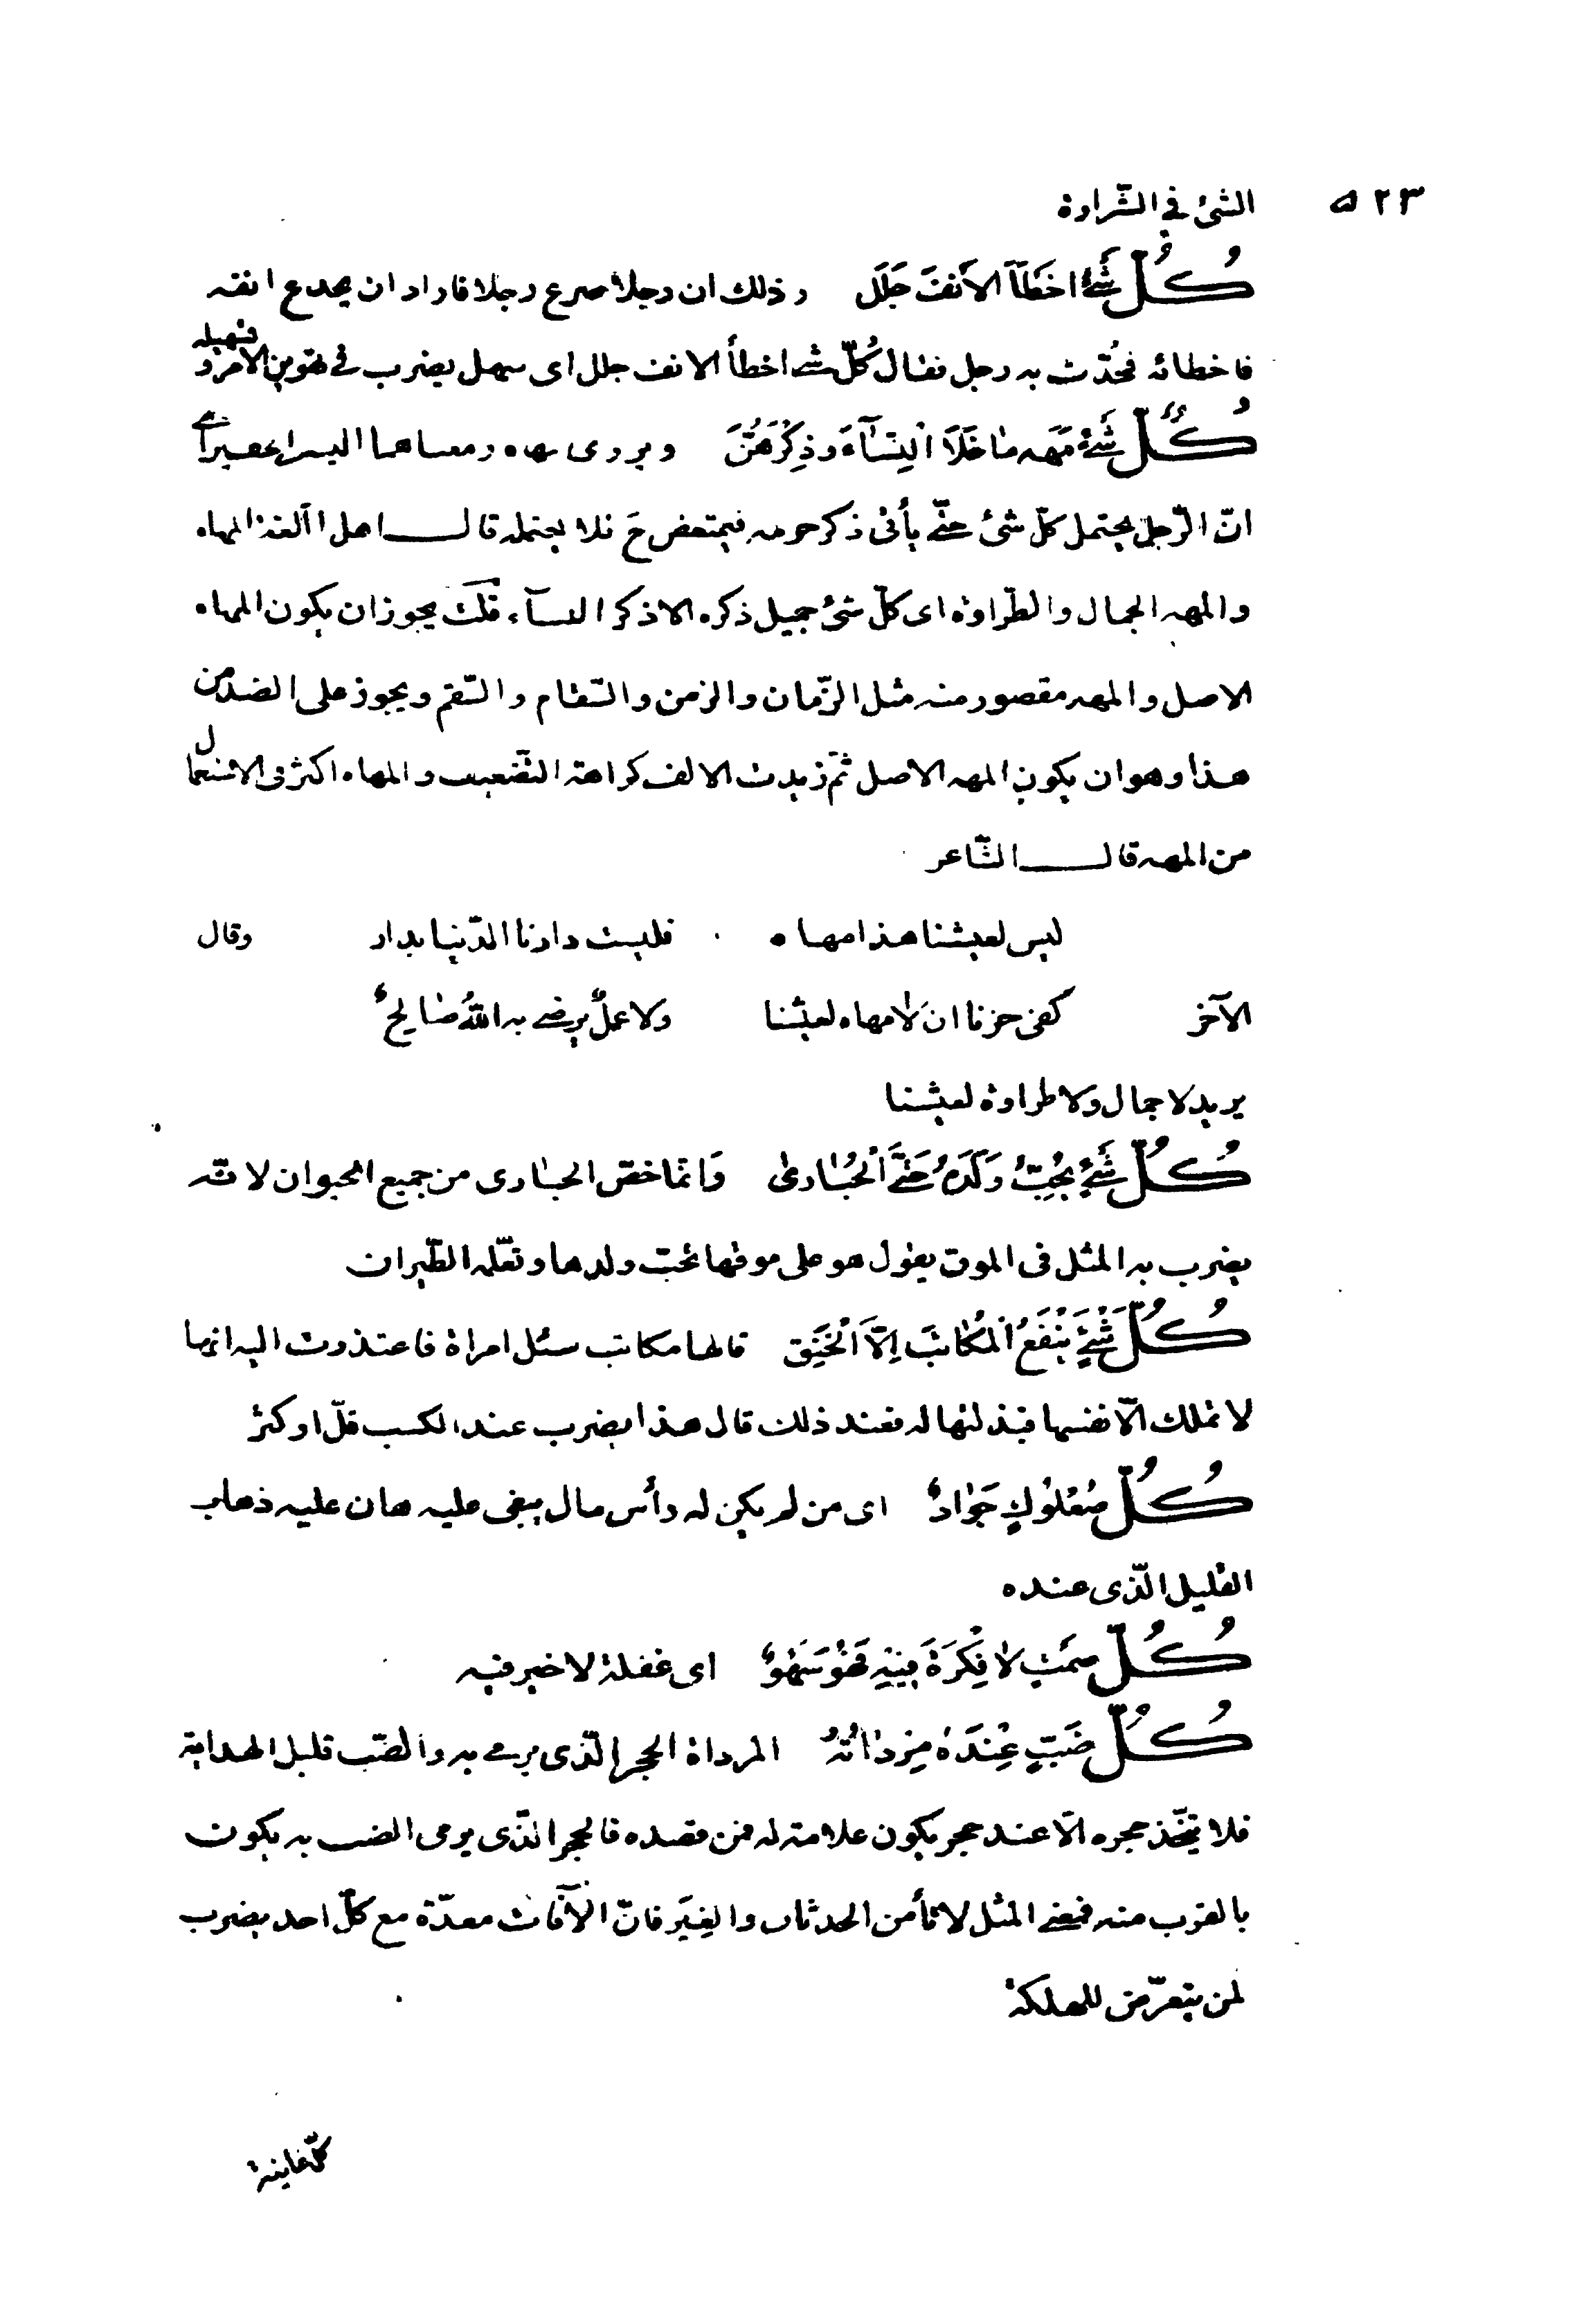 ٥٢٣
الشئ في الشّراوة
كُلُّ شَئٍ اخَطَأَ الاَنفَ جَلَل وذلك ان رجلا صرع رجلا فاراد ان يجدع انفه
فاخطائه فحُدّث به رجل فقال كُلّ شئ اخطأ الانف جلل اى سهل يضرب فى تهوين الامر وتسهيله
كُلُّ شَئٍ مَهَه مٰا خَلَا اْلنِسٰآءَ وَذِكْرَهُنَّ ويروى مهاه ومعناهما اليسير الحقير اى
انّ الرّجل يحتمل كلّ شئ حتّى يأتى ذكر حرمه فيمتعض حَ فلا يحتمله قال اهل االلغة المهاه
والمهه الجمال والطّراوة اى كلّ شئ جميل ذكره الا ذكر النسآء قلت يجوز ان يكون المهاه
الاصل والمهه مقصور منه مثل الزّمان والزمن والسّقام والسّقم ويجوز على الضد من
هذا وهو ان يكون المهه الاصل ثمّ زيدت الالف كراهة التّضعيف والمهاه اكثر فى الاستعمال
من المهه قال الشّاعر
ليس لعيشنا هذا مهاه فليست دارنا الدّنيا بدار وقال
الآخر كفى حزنا ان لا مهاه لعيشنا ولا عملٌ يرضى به اللّهُ صٰالحٌ
يريد لا جمال ولا طراوة لعيشنا
كُلُّ شَئٍ يُحِبُّ وَلَدَهُ حَتَّى اْلحُبٰارىٰ وَانّما خصّ الحبٰارى من جميع الحيوان لانّه
يضرب به المثل فى الموق يقول هو على موقها تحب ولدها وتعلّمه الطّيران
كُلُّ شَئٍ يَنْفَعُ اْلمُكٰاتَبَ اِلَّا اَلْخَنِق قالها مكاتب سئل امراة فاعتذرت اليه انها
لا تملك الّا نفسها فبذلتها له فعند ذلك قال هذا يضرب عند الكسب قلّ او كثر
كُلُّ صُعْلوُكٍ جَوٰادٌ اى من لم يكن له رأس مال يبقى عليه هان عليه ذهاب
القليل الّذى عنده
كُلُّ صَمْتٍ لٰا فِكْرَةَ فيٖهِ فَهُوَ سَهْوٌ اى غفلة لا خير فيه
كُلُّ ضَبٍّ عِنْدَهُ مِرْدٰاتُهُ المرداة الحجر الّذى يرمى به والضّب قليل الهداية
فلا يتّخذ حجره الّا عند حجر يكون علامة له فمن قصده فالحجر الّذى يرمى الضب به يكون
بالقرب منه فمعنى المثل لا تأمن الحدثان والغِيَر فانّ الآفات معدّة مع كلّ احد يضرب
لمن يتعرّض للهلكة
كلّ غانية